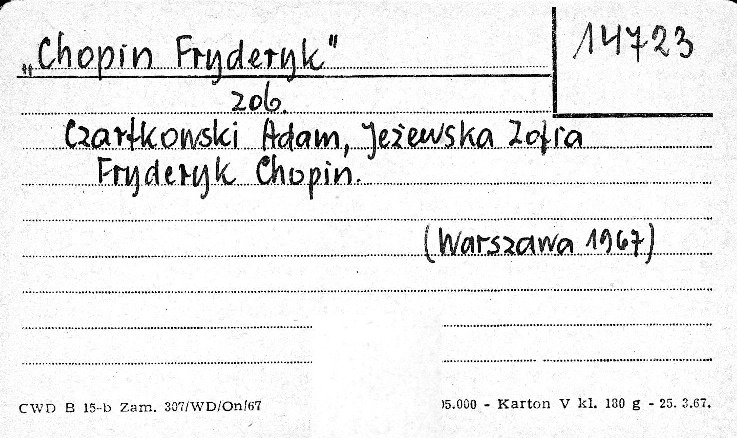 „Chopin Fryderyk"
14723
zob.
Czartkowski Adam, Jeżewska Zofia
Fryderyk Chopin.
(Warszawa 1967)
CWD B 15-b Zam. 307/WD/On/67
05.000 - Karton V kl. 180 g - 25. 3.67.